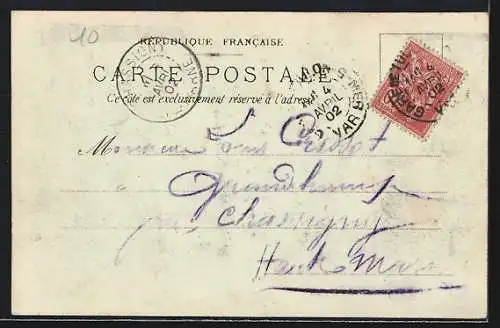 10
RÉPUBLIQUE FRANÇAISE
CARTE POSTALE
Ce côté est exclusivement réservé à l'adresse
4 AVRIL 02 VAR
GARE 4 AVRIL 02
AVRIL 02
Monsieur Louis
à
Grandchamp
par Chassigny
Haute Marne